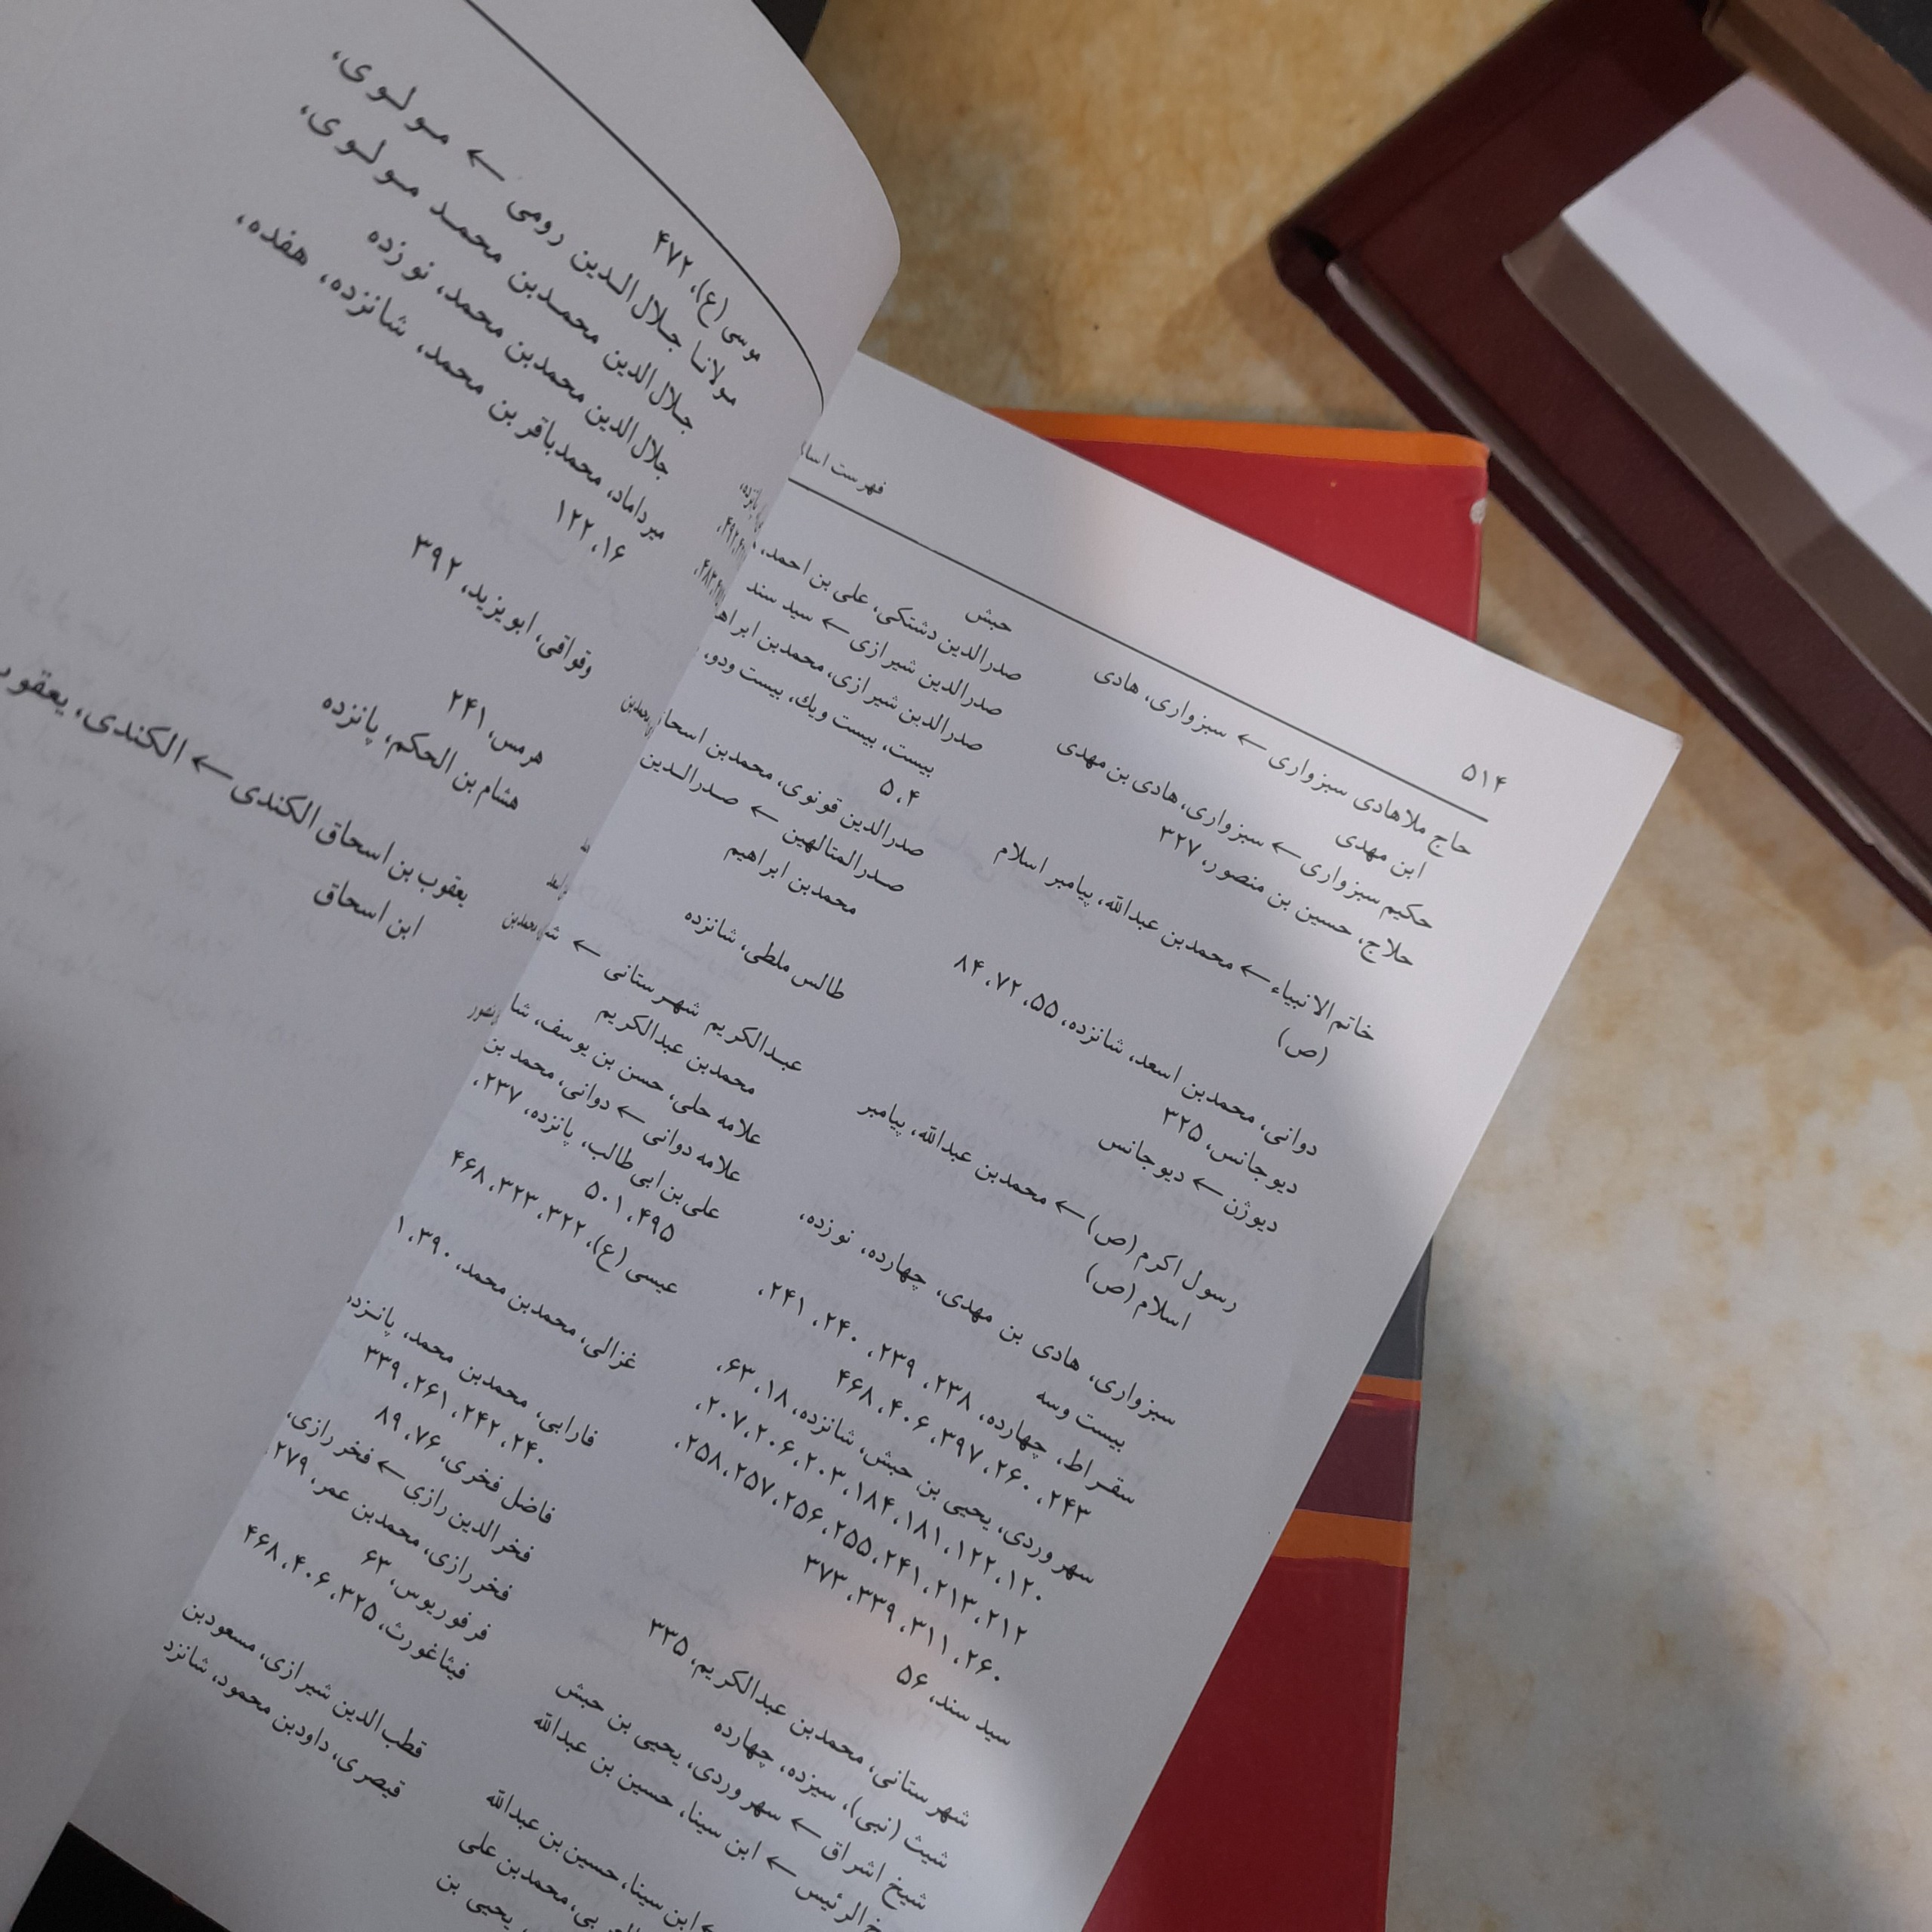 ۵۱۴
فهرست
حاج ملاهادی سبزواری ← سبزواری، هادی
ابن مهدی
حکیم سبزواری ← سبزواری، هادی بن مهدی
حلاج، حسین بن منصور، ۳۲۷
خاتم الانبیاء ← محمدبن عبدالله، پیامبر اسلام
(ص)
دوانی، محمدبن اسعد، شانزده، ۵۵، ۷۲، ۸۴
دیوجانس، ۳۲۵
دیوژن ← دیوجانس
رسول اکرم (ص) ← محمدبن عبدالله، پیامبر
اسلام (ص)
سبزواری، هادی بن مهدی، چهارده، نوزده،
بیست وسه
سقراط، چهارده، ۲۳۸، ۲۳۹، ۲۴۰، ۲۴۱،
۲۴۳، ۲۶۰، ۳۹۷، ۴۰۶، ۴۶۸
سهروردی، یحیی بن حبش، شانزده، ۱۸، ۶۳،
۱۲۰، ۱۲۲، ۱۸۱، ۱۸۴، ۲۰۳، ۲۰۶، ۲۰۷،
۲۱۲، ۲۱۳، ۲۴۱، ۲۵۵، ۲۵۶، ۲۵۷، ۲۵۸،
۲۶۰، ۳۱۱، ۳۳۹، ۳۷۳
سید سند، ۵۶
شهرستانی، محمدبن عبدالکریم، ۳۳۵
شیث (نبی)، سیزده، چهارده
شیخ اشراق ← سهروردی، یحیی بن حبش
الرئیس ← ابن سینا، حسین بن عبدالله
← ابن سینا، حسین بن عبدالله
محمدبن علی
یحیی بن
حبش
صدرالدین دشتکی، علی بن احمد،
صدرالدین شیرازی ← سید سند
صدرالدین شیرازی، محمدبن
بیست، بیست ویك، بیست ودو،
۴، ۵
صدرالدین قونوی، محمدبن
صدرالمتالهین ← صدرالدین
محمدبن ابراهیم
طالس ملطی، شانزده
عبدالکریم شهرستانی ←
محمدبن عبدالکریم
علامه حلی، حسن بن یوسف،
علامه دوانی ← دوانی، محمد بن
علی بن ابی طالب، پانزده، ۲۳۷،
۴۹۵، ۵۰۱
عیسی (ع)، ۳۲۲، ۳۲۳، ۴۶۸
غزالی، محمدبن محمد، ۳۹۰،
فارابی، محمدبن محمد، پانزده
۲۴۰، ۲۴۲، ۲۶۱، ۳۳۹
فاضل فخری، ۷۶، ۸۹
فخرالدین رازی ← فخر رازی،
فخر رازی، محمدبن عمر، ۲۷۹
فرفوریوس، ۶۳
فیثاغورث، ۳۲۵، ۴۰۶، ۴۶۸
قطب الدین شیرازی، مسعودبن
قیصری، داودبن محمود،
موسی (ع)، ۴۷۲
مولانا جلال الدین رومی ← مولوی،
جلال الدین محمدبن محمد مولوی،
جلال الدین محمدبن محمد، نوزده
میرداماد، محمدباقر بن محمد، شانزده، هفده،
۱۶، ۱۲۲
وقواقی، ابویزید، ۳۹۲
هرمس، ۲۴۱
هشام بن الحکم، پانزده
یعقوب بن اسحاق الکندی ← الکندی،
ابن اسحاق